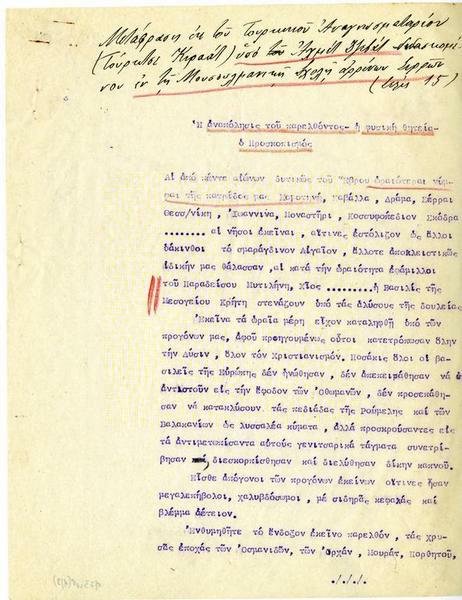 Μετάφρασις ἐκ τοῦ Τουρκικοῦ Ἀναγνωσματαρίου
(Τούρκτσε Κιραάτ) ὑπὸ τοῦ Ἀχμὲτ
νου ἐν τῇ Μουσουλμανικῇ Σχολῇ ἀρρένων Σερρῶν
(σελὶς 15)
Ἡ ἀναπόλησις τοῦ παρελθόντος- ἡ φυσικὴ θητεία-
ὁ Προσκοπισμός
Αἱ ἀπὸ πέντε αἰώνων δυτικῶς τοῦ Ἕβρου ὡραιότεραι νύμ-
φαι τῆς πατρίδος μας Κομοτινή, Καβάλλα, Δράμα, Σέρραι
Θεσσ/νίκη, Ἰωάννινα, Μοναστήρι, Κοσσυφοπέδιον Σκόδρα
......... αἱ νῆσοι ἐκεῖναι, αἵτινες ἐστόλιζον ὡς ἄλλοι
ὑάκινθοι τὸ σμαράγδινον Αἰγαῖον, ἄλλοτε ἀποκλειστικῶς
ἰδικήν μας θάλασσαν ,αἱ κατὰ τὴν ὡραιότητα ἐφάμιλλοι
τοῦ Παραδείσου Μυτιλήνη, Χῖος .........ἡ Βασιλὶς τῆς
Μεσογείου Κρήτη στενάζουν ὑπὸ τὰς ἁλύσους τῆς δουλείας.
Ἐκεῖνα τὰ ὡραῖα μέρη εἶχον καταληφθῇ ὑπὸ τῶν
προγόνων μας, ἀφοῦ προηγουμένως οὗτοι κατετρόπωσαν ὅλην
τὴν Δύσιν, ὅλον τὸν Χριστιανισμόν. Ποσάκις ὅλοι οἱ βα-
σιλεῖς τῆς Εὐρώπης δὲν ἡνώθησαν, δὲν ἀπεπειράθησαν νὰ
ἀντιστοῦν εἰς τὴν ἔφοδον τῶν Ὀθωμανῶν, δὲν προσεπάθη-
σαν νὰ κατακλύσουν. τὰς πεδιάδας τῆς Ρούμελης καὶ τῶν
Βαλκανίων ὡς λυσσαλέα κύματα, ἀλλὰ προσκρούσαντες εἰς
τὰ ἀντιμετωπίσαντα αὐτοὺς γενιτσαρικὰ τάγματα συνετρί-
βησαν διεσκορπίσθησαν καὶ διελύθησαν δίκην καπνοῦ.
Εἶσθε ἀπόγονοι τῶν προγόνων ἐκείνων οἵτινες ἦσαν
μεγαλεπήβολοι, χαλυβδόσωμοι, μὲ σιδηρᾶς κεφαλὰς καὶ
βλέμμα ἀέτειον.
Ἐνθυμηθῆτε τὸ ἔνδοξον ἐκεῖνο παρελθόν, τὰς χρυ-
σᾶς ἐποχὰς τῶν Ὀσμανιδῶν, τῶν Ὀρχάν, Μουράτ, Πορθητοῦ,
./././.